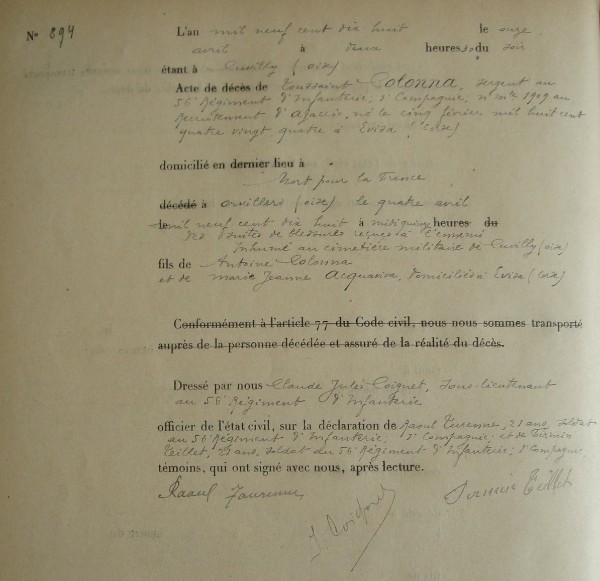 N° 894
L'an mil neuf cent dix huit le onze
avril à deux heures du soir
étant à Cuvilly (oise)
Acte de décès de Toussaint Colonna, sergent au
56e Régiment d'Infanterie, Compagnie, n° mle 1909 au
Recrutement d'Ajaccio, né le cinq février mil huit cent
quatre vingt quatre à Evisa (Corse)
domicilié en dernier lieu à
Mort pour la France
décédé à Orvillers (oise) le quatre avril
le mil neuf cent dix huit à heures du
des suites de blessures reçues à l'ennemi
inhumé au cimetière militaire de Cuvilly (oise)
fils de Antoine Colonna
et de marie Jeanne Acquaviva, domiciliés à Evisa (Corse)
Conformément à l'article 77 du Code civil, nous nous sommes transporté
auprès de la personne décédée et assuré de la réalité du décès.
Dressé par nous Claude Jules Coignet, sous-lieutenant
au 56e Régiment d'Infanterie
officier de l'état civil, sur la déclaration de Raoul Turenne, 21 ans, soldat
au 56e Régiment d'Infanterie, Compagnie, et de Firmin
Teillet, 21 ans, soldat du 56e Régiment d'Infanterie, Compagnie,
témoins, qui ont signé avec nous, après lecture.
Raoul Firmin Teillet
J. Coignet